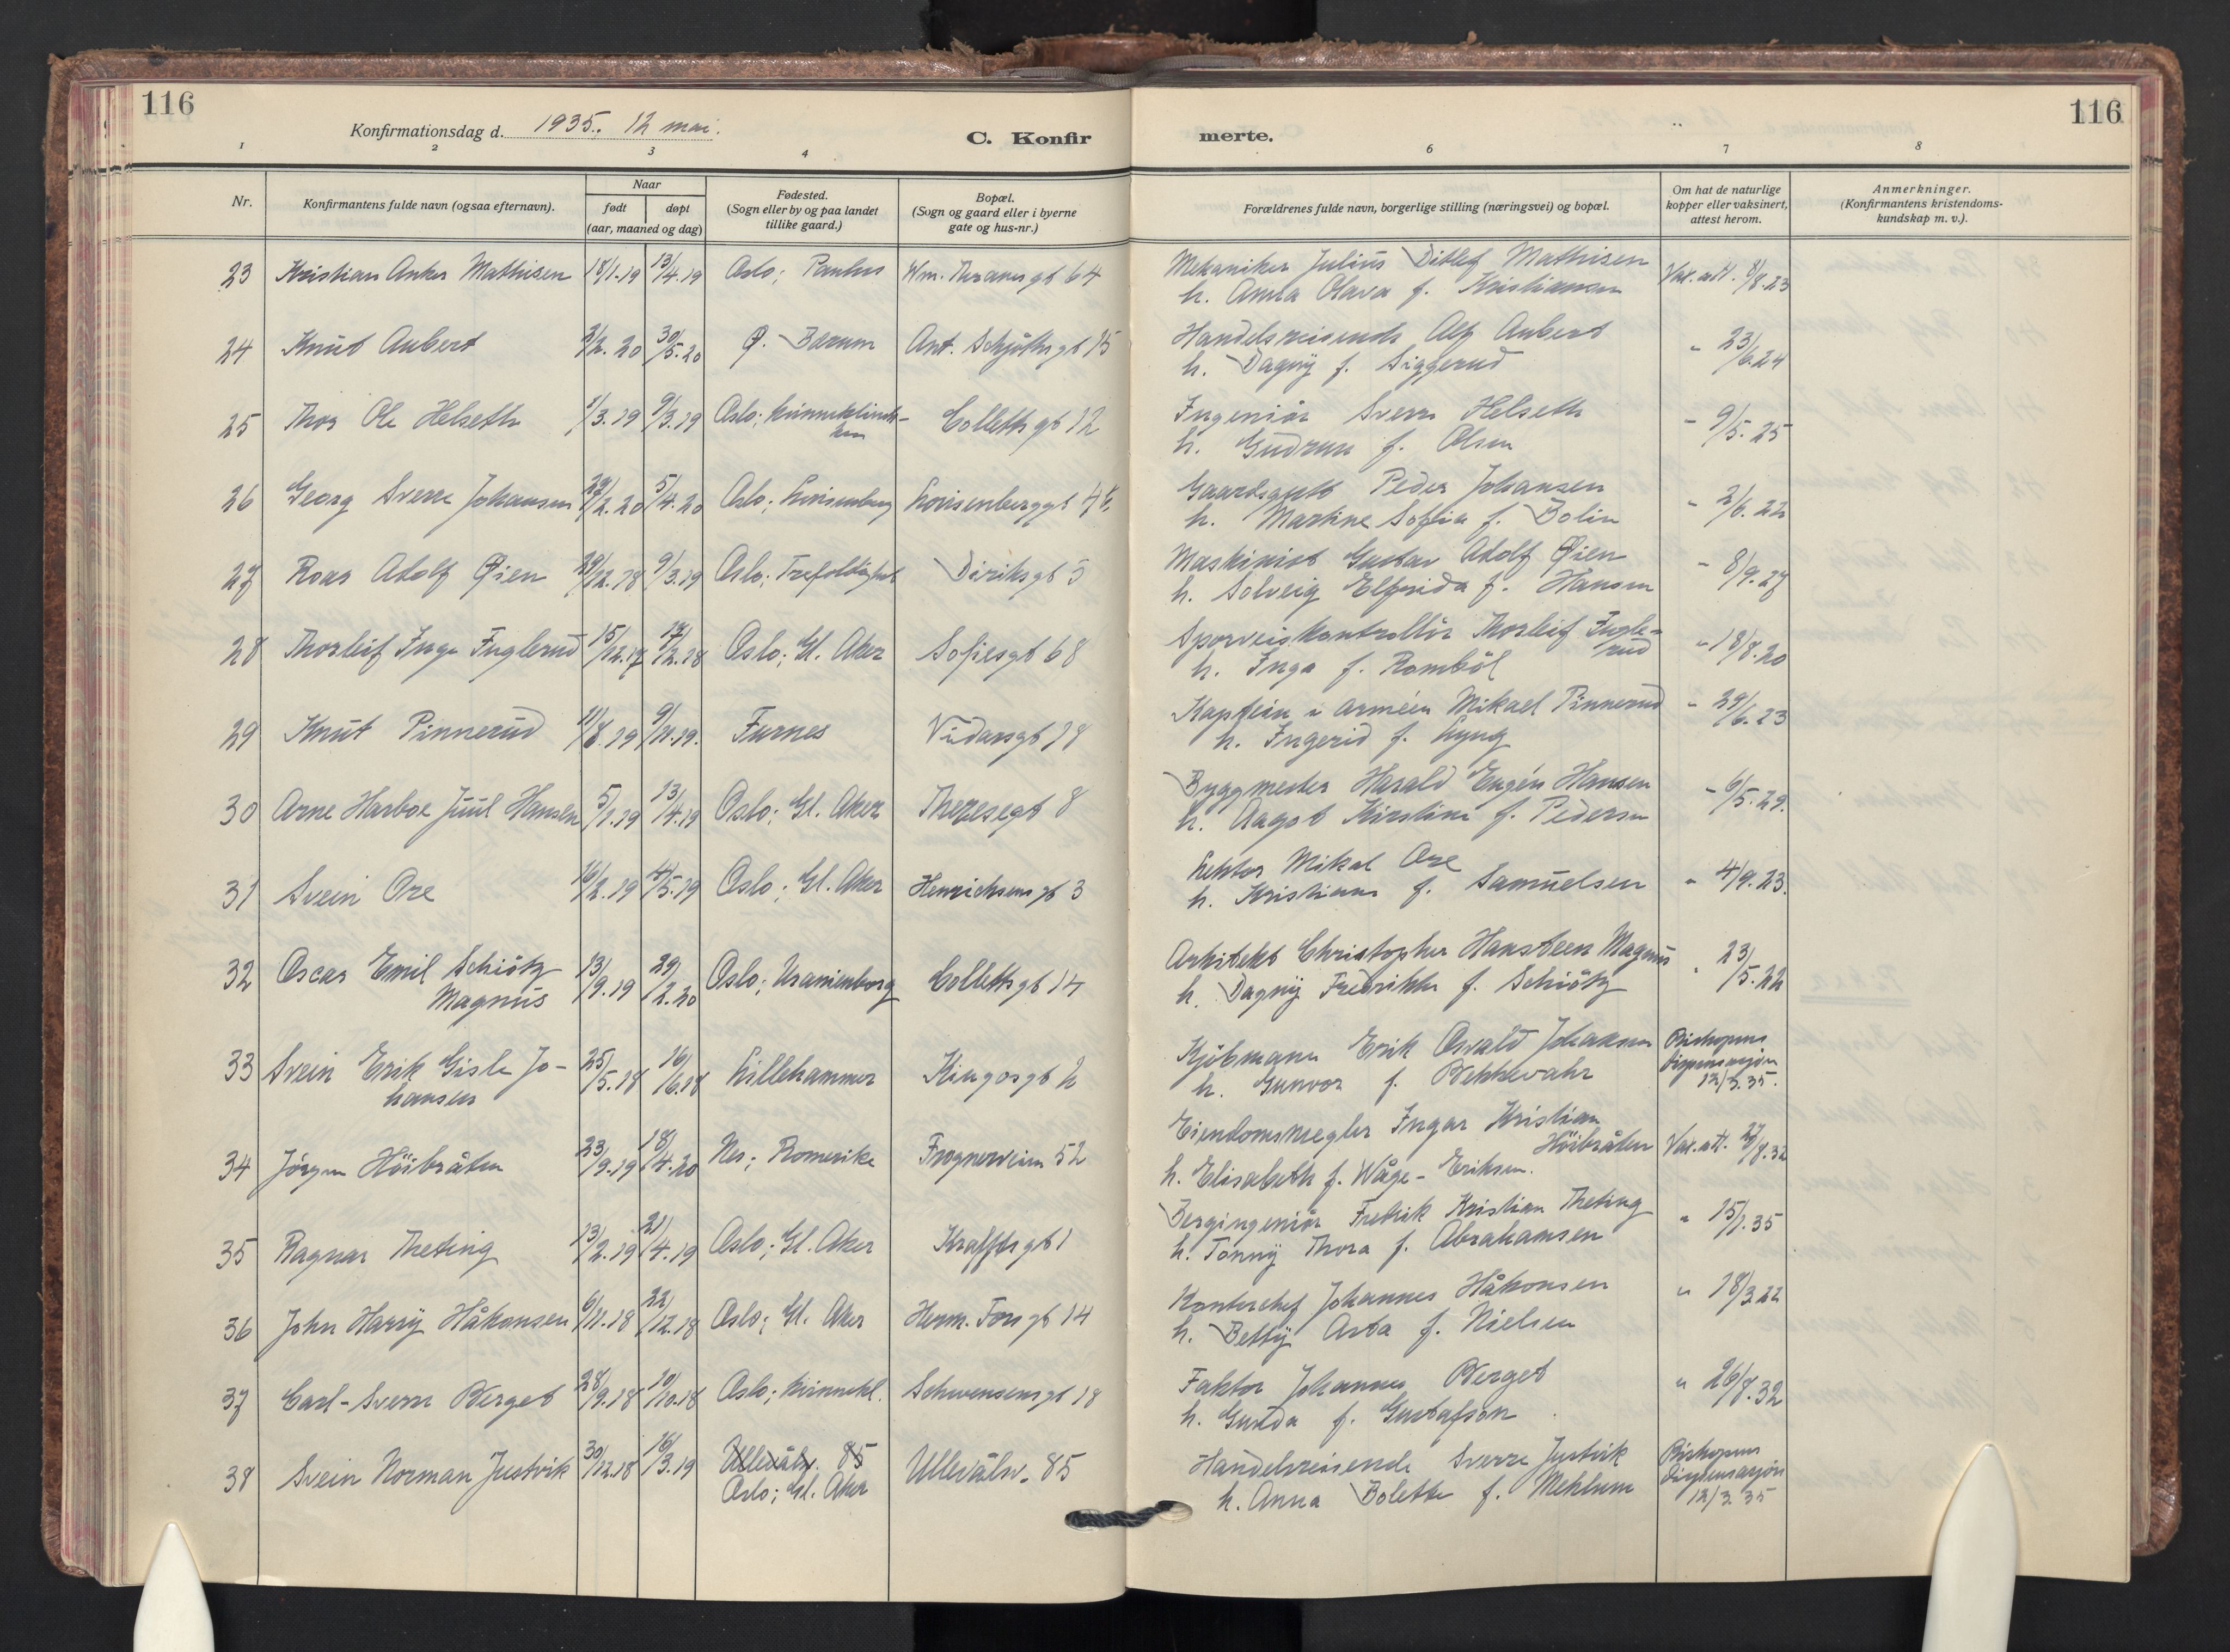 116
116
Konfirmationsdag d. 1935. 12 mai.
C. Konfir
merte.
1
2
3
4
6
7
8
Nr.
Konfirmantens fulde navn (ogsaa efternavn).
Naar
født
døpt
(aar, maaned og dag)
Fødested.
(Sogn eller by og paa landet
tillike gaard.)
Bopæl.
(Sogn og gaard eller i byerne
gate og hus-nr.)
Forældrenes fulde navn, borgerlige stilling (næringsvei) og bopæl.
Om hat de naturlige
kopper eller vaksinert,
attest herom.
Anmerkninger.
(Konfirmantens kristendoms-
kundskap m. v.).
23 Kristian Anker Mathisen 18/1.19 13/4.19 Oslo; Paulus Wm. Thranesgt 64
Mekaniker Julius Ditlef Mathisen Vak. att. 8/8.23
h. Anna Olava f. Kristiansen
24 Knut Aubert 3/2.20 30/5.20 Ø. Bærum Ant. Schjøthsgt 15
Handelsreisende Alf Aubert " 23/6.24
h. Dagny f. Siggerud
25 Thor Ole Helseth 1/3.19 9/3.19 Oslo; Kvinneklinik-
ken
Collettsgt 12
Ingeniør Sverre Helseth " 9/5.25
h. Gudrun f. Olsen
26 Georg Sverre Johansen 29/2.20 5/4.20 Oslo; Lovisenberg Lovisenberggt
Gaardsgutt Peder Johansen " 2/6.22
h. Martine Sofia f. Bolin
27 Roar Adolf Øien 29/12.18 9/3.19 Oslo; Trefoldighet Diriksgt 5
Maskinist Gustav Adolf Øien " 8/9.27
h. Solveig Elfrida f. Hansen
28 Thorleif Inge Fuglerud 15/12.17 17/2.18 Oslo; Gl. Aker Sofiesgt 68
Sporveiskontrollör Thorleif Fugle-
rud " 18/8.20
h. Inga f. Romböl
29 Knut Pinnerud 11/8.19 9/11.19. Furnes Vidarsgt 18
Kaptein i arméen Mikael Pinnerud " 29/6.23
h. Ingerid f. Lyng
30 Arne Harboe Juul Hansen 5/1.19 13/4.19 Oslo; Gl. Aker Theresegt 8
Byggmester Harald Eugén Hansen " 6/5.29.
h. Aagot Kirstine f. Pedersen
31 Svein Ore 16/2.19 4/5.19 Oslo; Gl. Aker Henrichsensgt 3
Lektor Mikal Ore
h. Kristiane f. Samuelsen " 4/9.23.
32 Oscar Emil Schiötz
Magnus 13/9.19 29/2.20 Oslo; Uranienborg Collettsgt 14
Arkitekt Christopher Hansteen Magnus " 23/5.22
h. Dagny Fredrikke f. Schiötz
33 Svein Erik Gisle Jo-
hansen 25/5.18 16/6.18 Lillehammer Kingosgt 2
Kjöbmann Erik Osvald Johansen Biskopens
dispensasjon
12/3.35.
h. Gunvor f. Bekkevahr
34 Jörgen Höibråten 23/9.19 18/4.20 Nes; Romerike Frognerveien 52
Eiendomsmegler Ingar Kristian
Höibråten Vak. att. 27/8.32
h. Elisabeth f. Wåge-Eriksen.
35 Ragnar Theting 13/2.19 21/4.19 Oslo; Gl. Aker Krafftsgt 1
Bergingeniör Fredrik Kristian Theting " 15/1.35
h. Tonny Thora f. Abrahamsen
36 John Harry Håkonsen 6/11.18 22/12.18 Oslo; Gl. Aker Herm. Fossgt 14
Kontorchef Johannes Håkonsen " 18/3.22
h. Betty Asta f. Nielsen
37 Carl-Sverre Berget 28/9.18 10/10.18 Oslo; Kvinnekl. Schwensensgt 18
Faktor Johannes Berget " 26/8.32
h. Gunda f. Gustafson
38 Svein Norman Justvik 30/12.18 16/3.19 Ullevålsv. 85
Oslo; Gl. Aker
Ullevålsv. 85
Handelsreisende Sverre Justvik Biskopens
dispensasjon
12/3.35
h. Anna Bolette f. Mehlum